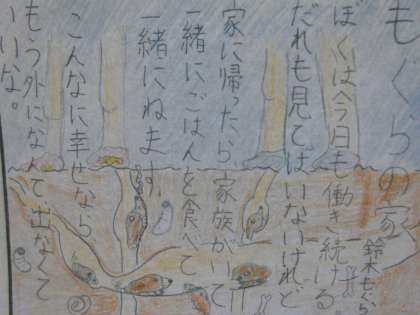 もぐらの家
鈴木もぐら
ぼくは今日も働き続ける。
だれも見てはいないけれど
家に帰ったら、家族がいて
一緒にごはんを食べて
一緒にねます。
こんなに幸せなら
もう外になんて、出なくて
いいな。